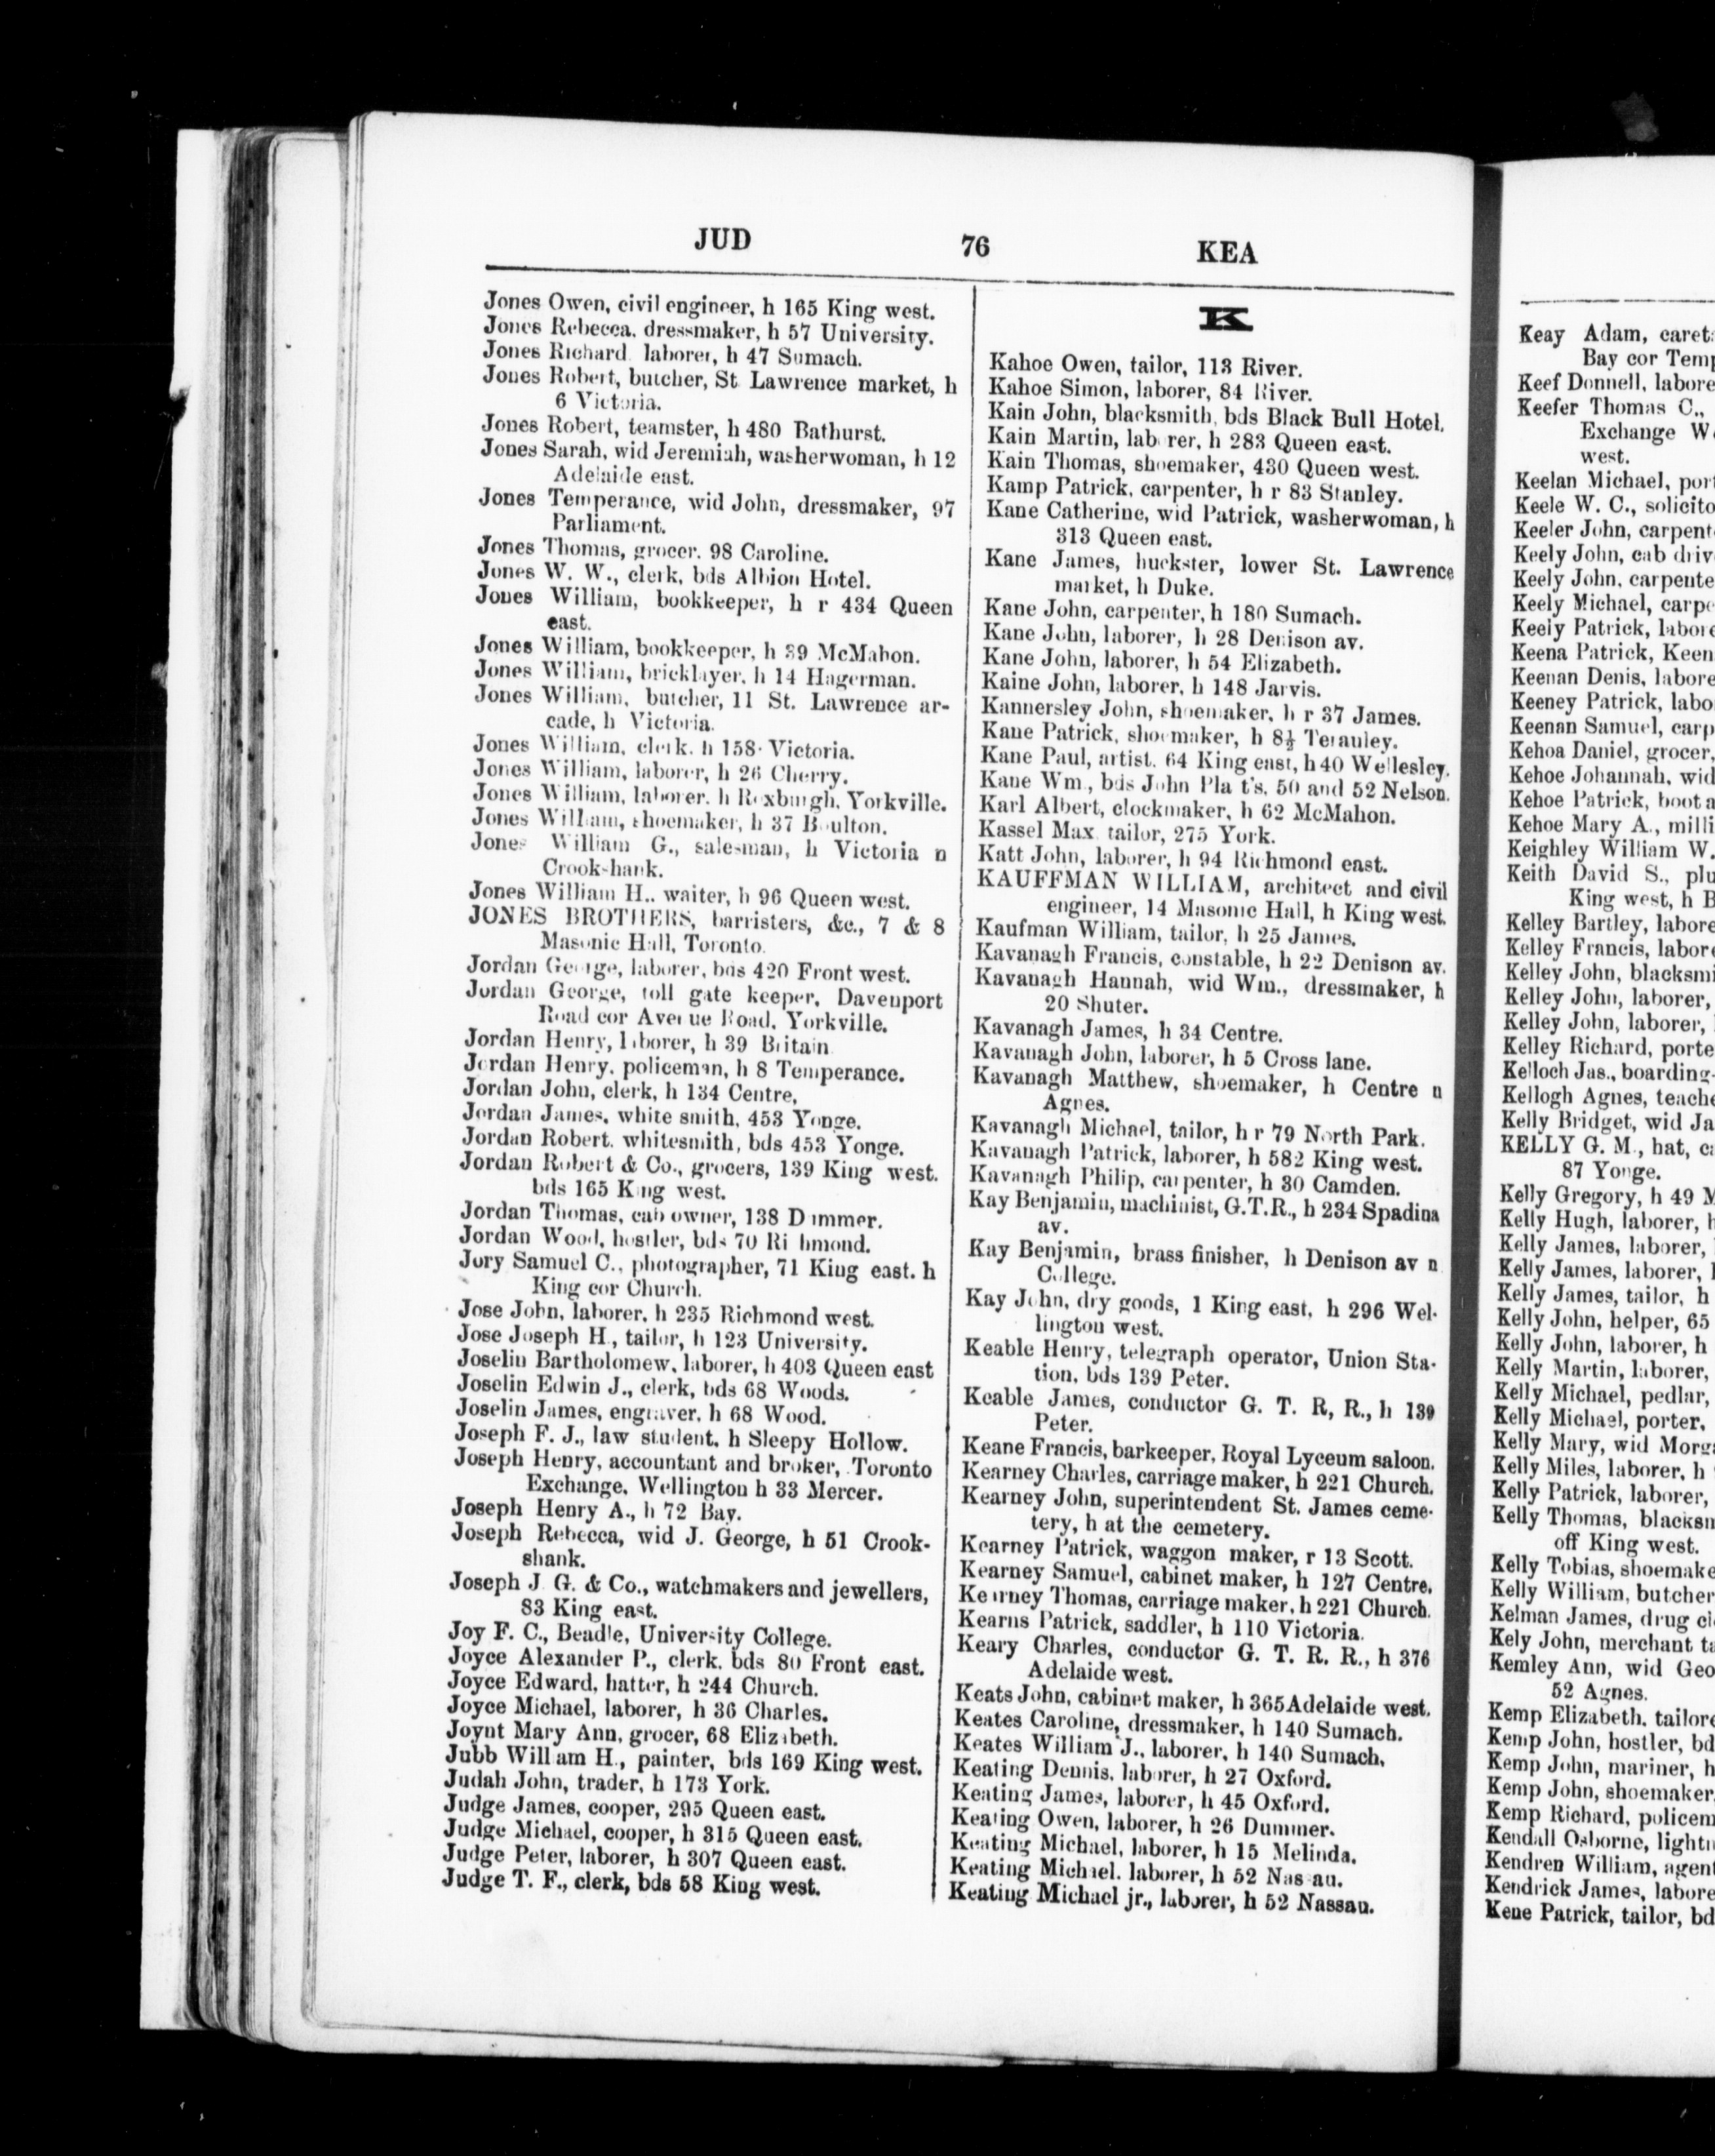 JUD 76 KEA
Jones Owen, civil engineer, h 165 King west.
Jones Rebecca, dressmaker, h 57 University.
Jones Richard laborer, h 47 Sumach.
Jones Robert, butcher, St Lawrence market, h
6 Victoria.
Jones Robert, teamster, h 480 Bathurst.
Jones Sarah, wid Jeremiah, washerwoman, h 12
Adelaide east.
Jones Temperance, wid John, dressmaker, 97
Parliament.
Jones Thomas, grocer. 98 Caroline.
Jones W. W., clerk, bds Albion Hotel.
Jones William, bookkeeper, h r 434 Queen
east.
Jones William, bookkeeper, h 39 McMahon.
Jones William, bricklayer, h 14 Hagerman.
Jones William, butcher, 11 St. Lawrence ar-
cade, h Victoria.
Jones William, clerk. h 158 Victoria.
Jones William, laborer, h 26 Cherry.
Jones William, laborer. h Roxburgh, Yorkville.
Jones William, shoemaker, h 37 Boulton.
Jones William G., salesman, h Victoria n
Crookshank.
Jones William H.. waiter, h 96 Queen west.
JONES BROTHERS, barristers, &c., 7 & 8
Masonic Hall, Toronto.
Jordan George, laborer, bds 420 Front west.
Jordan George, toll gate keeper, Davenport
Road cor Avenue Road, Yorkville.
Jordan Henry, laborer, h 39 Britain
Jordan Henry, policeman, h 8 Temperance.
Jordan John, clerk, h 134 Centre,
Jordan James, white smith, 453 Yonge.
Jordan Robert. whitesmith, bds 453 Yonge.
Jordan Robert & Co., grocers, 139 King west.
bds 165 King west.
Jordan Thomas, cab owner, 138 Dummer.
Jordan Wood, hostler, bds 70 Richmond.
Jory Samuel C., photographer, 71 King east. h
King cor Church.
Jose John, laborer. h 235 Richmond west.
Jose Joseph H., tailor, h 123 University.
Joselin Bartholomew, laborer, h 403 Queen east
Joselin Edwin J., clerk, bds 68 Woods.
Joselin James, engraver, h 68 Wood.
Joseph F. J., law student, h Sleepy Hollow.
Joseph Henry, accountant and broker, Toronto
Exchange, Wellington h 33 Mercer.
Joseph Henry A., h 72 Bay.
Joseph Rebecca, wid J. George, h 51 Crook-
shank.
Joseph J G. & Co., watchmakers and jewellers,
83 King east.
Joy F. C., Beadle, University College.
Joyce Alexander P., clerk. bds 80 Front east.
Joyce Edward, hatter, h 244 Church.
Joyce Michael, laborer, h 36 Charles.
Joynt Mary Ann, grocer, 68 Elizabeth.
Jubb William H., painter, bds 169 King west.
Judah John, trader, h 173 York.
Judge James, cooper, 295 Queen east.
Judge Michael, cooper, h 315 Queen east.
Judge Peter, laborer, h 307 Queen east.
Judge T. F., clerk, bds 58 King west.
K
Kahoe Owen, tailor, 113 River.
Kahoe Simon, laborer, 84 River.
Kain John, blacksmith, bds Black Bull Hotel.
Kain Martin, laborer, h 283 Queen east.
Kain Thomas, shoemaker, 430 Queen west.
Kamp Patrick, carpenter, h r 83 Stanley.
Kane Catherine, wid Patrick, washerwoman, h
313 Queen east.
Kane James, huckster, lower St. Lawrence
market, h Duke.
Kane John, carpenter, h 180 Sumach.
Kane John, laborer, h 28 Denison av.
Kane John, laborer, h 54 Elizabeth.
Kaine John, laborer, h 148 Jarvis.
Kannersley John, shoemaker, h r 37 James.
Kane Patrick, shoemaker, h 8½ Terauley.
Kane Paul, artist. 64 King east, h 40 Wellesley.
Kane Wm., bds John Platt's, 50 and 52 Nelson.
Karl Albert, clockmaker, h 62 McMahon.
Kassel Max tailor, 275 York.
Katt John, laborer, h 94 Richmond east.
KAUFFMAN WILLIAM, architect and civil
engineer, 14 Masonic Hall, h King west.
Kaufman William, tailor, h 25 James.
Kavanagh Francis, constable, h 22 Denison av.
Kavanagh Hannah, wid Wm., dressmaker, h
20 Shuter.
Kavanagh James, h 34 Centre.
Kavanagh John, laborer, h 5 Cross lane.
Kavanagh Matthew, shoemaker, h Centre n
Agnes.
Kavanagh Michael, tailor, h r 79 North Park.
Kavanagh Patrick, laborer, h 582 King west.
Kavanagh Philip, carpenter, h 30 Camden.
Kay Benjamin, machinist, G.T.R., h 234 Spadina
av.
Kay Benjamin, brass finisher, h Denison av n
College.
Kay John, dry goods, 1 King east, h 296 Wel-
lington west.
Keable Henry, telegraph operator, Union Sta-
tion, bds 139 Peter.
Keable James, conductor G. T. R, R., h 139
Peter.
Keane Francis, barkeeper, Royal Lyceum saloon.
Kearney Charles, carriage maker, h 221 Church.
Kearney John, superintendent St. James ceme-
tery, h at the cemetery.
Kearney Patrick, waggon maker, r 13 Scott.
Kearney Samuel, cabinet maker, h 127 Centre.
Kearney Thomas, carriage maker, h 221 Church.
Kearns Patrick, saddler, h 110 Victoria.
Keary Charles, conductor G. T. R. R., h 376
Adelaide west.
Keats John, cabinet maker, h 365 Adelaide west.
Keates Caroline, dressmaker, h 140 Sumach.
Keates William J., laborer, h 140 Sumach,
Keating Dennis, laborer, h 27 Oxford.
Keating James, laborer, h 45 Oxford.
Keating Owen, laborer, h 26 Dummer.
Keating Michael, laborer, h 15 Melinda.
Keating Michael. laborer, h 52 Nassau.
Keating Michael jr., laborer, h 52 Nassau.
Keay Adam, caret
Bay cor Temp
Keef Donnell, labore
Keefer Thomas C.,
Exchange W
west.
Keelan Michael, port
Keele W. C., solicito
Keeler John, carpent
Keely John, cab driv
Keely John, carpente
Keely Michael, carp
Keely Patrick, labore
Keena Patrick, Keen
Keenan Denis, labore
Keeney Patrick, labo
Keenan Samuel, carp
Kehoa Daniel, grocer,
Kehoe Johannah, wid
Kehoe Patrick, boot a
Kehoe Mary A., milli
Keighley William W.
Keith David S., plu
King west, h B
Kelley Bartley, labore
Kelley Francis, labore
Kelley John, blacksmi
Kelley John, laborer,
Kelley John, laborer,
Kelley Richard, porte
Kelloch Jas., boarding-
Kellogh Agnes, teache
Kelly Bridget, wid Ja
KELLY G. M., hat, c
87 Yonge.
Kelly Gregory, h 49 M
Kelly Hugh, laborer, h
Kelly James, laborer,
Kelly James, laborer,
Kelly James, tailor, h
Kelly John, helper, 65
Kelly John, laborer, h
Kelly Martin, laborer,
Kelly Michael, pedlar,
Kelly Michael, porter,
Kelly Mary, wid Morg
Kelly Miles, laborer, h
Kelly Patrick, laborer,
Kelly Thomas, blacksm
off King west.
Kelly Tobias, shoemake
Kelly William, butcher
Kelman James, drug cl
Kely John, merchant ta
Kemley Ann, wid Geo
52 Agnes.
Kemp Elizabeth, tailore
Kemp John, hostler, bd
Kemp John, mariner, h
Kemp John, shoemaker,
Kemp Richard, policem
Kendall Osborne, lightn
Kendren William, agent
Kendrick James, labore
Kene Patrick, tailor, bd